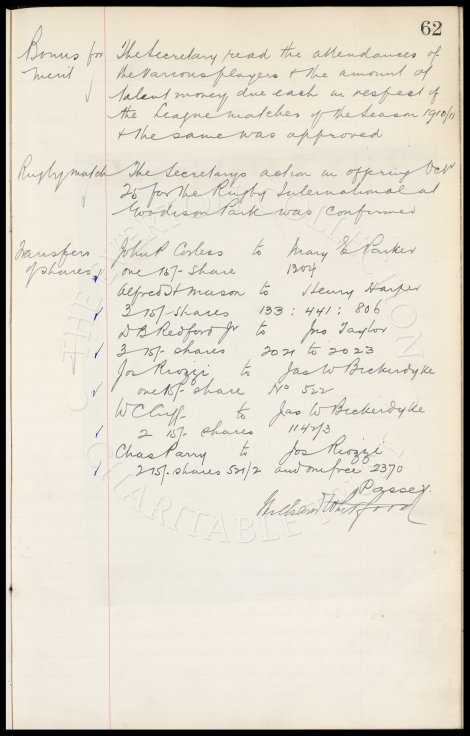 62
Bonus for The Secretary read the attendances of
merit the various players & the amount of
talent money due each in respect of
the League matches of the Season 1910/11
& the same was approved
Rugby match The Secretary's action in offering Oct
25 for the Rugby International at
Goodison Park was confirmed
Transfers John P Corless to Mary E Parker
of shares one 15/- Share 1304
Alfred H Mason to Henry Harper
3 15/- Shares 133 : 441 : 806
D B Redford Jr to Jno Taylor
3 15/- shares 2021 to 2023
Jos Riozzi to Jas W Bickerdyke
one 15/- share No 522
W C Cuff to Jas W Bickerdyke
2 15/- shares 1142/3
Chas Parry to Jos Riozzi
2 15/- shares 521/2 and one free 2370
Passed
THE EVERTON COLLECTION
CHARITABLE TRUST